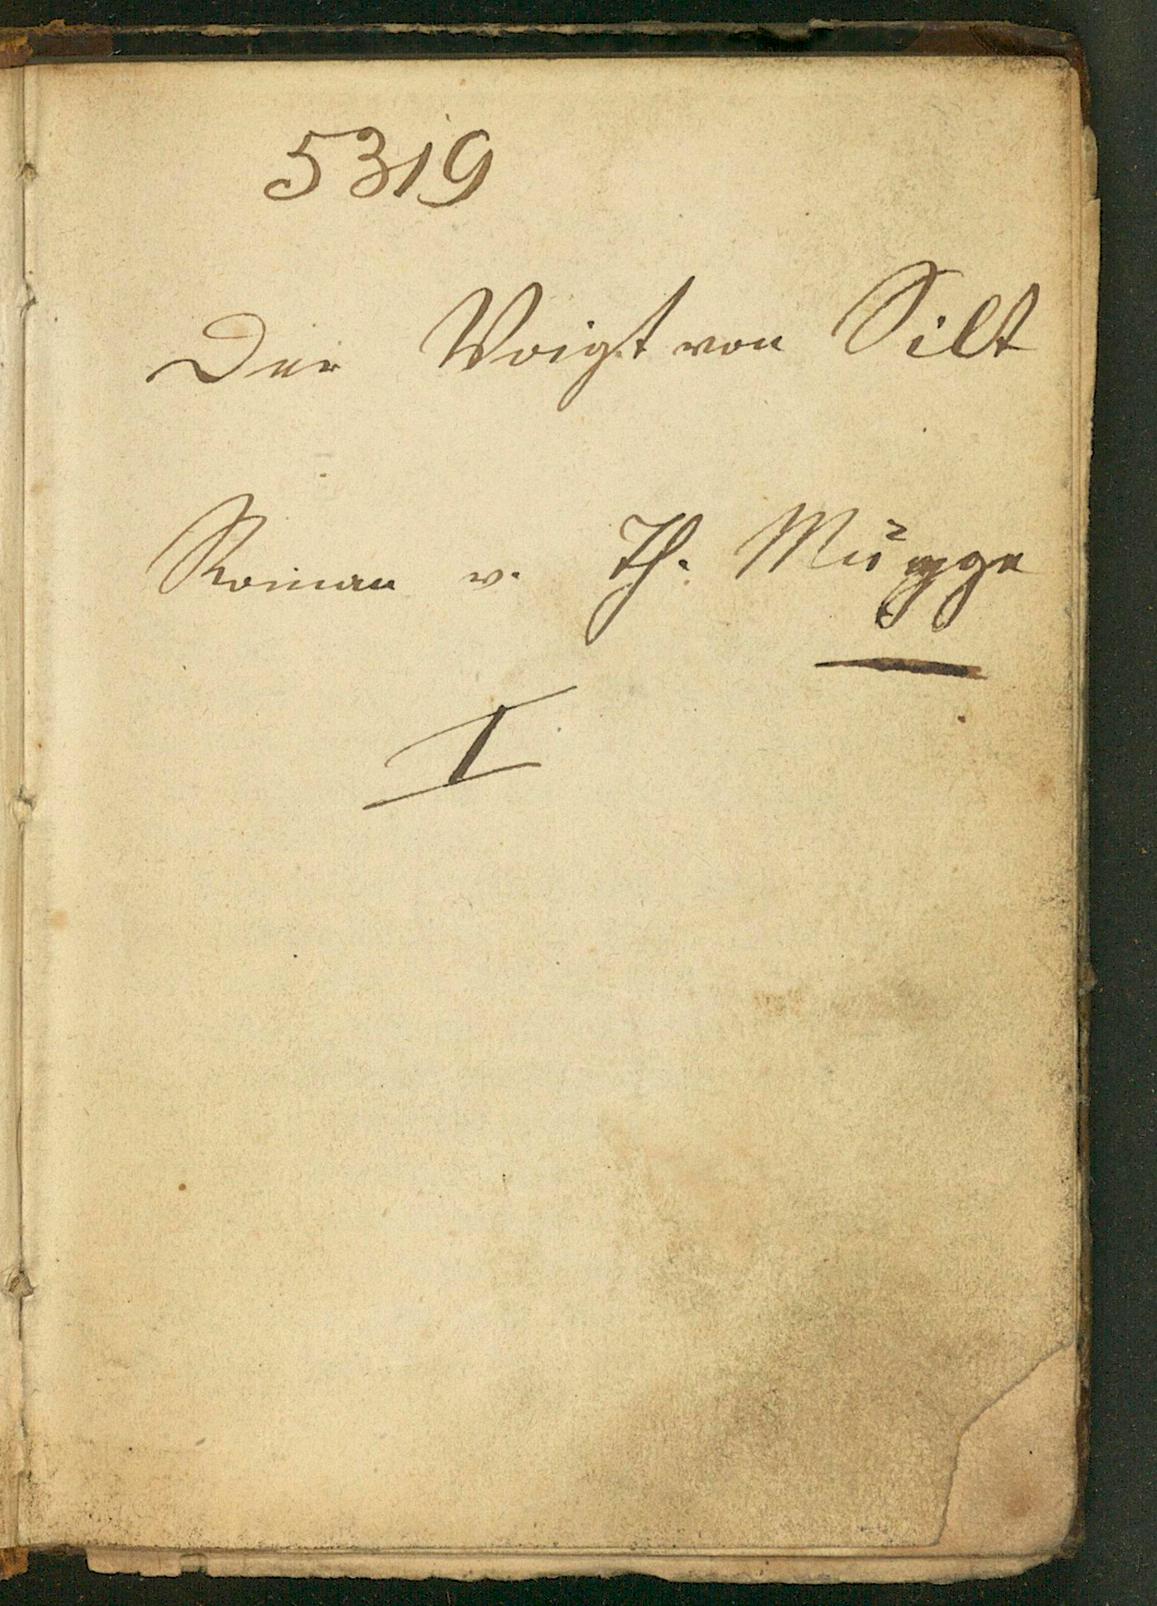 5319
Der Voigt von Silt
Roman v. Th. Mügge
I